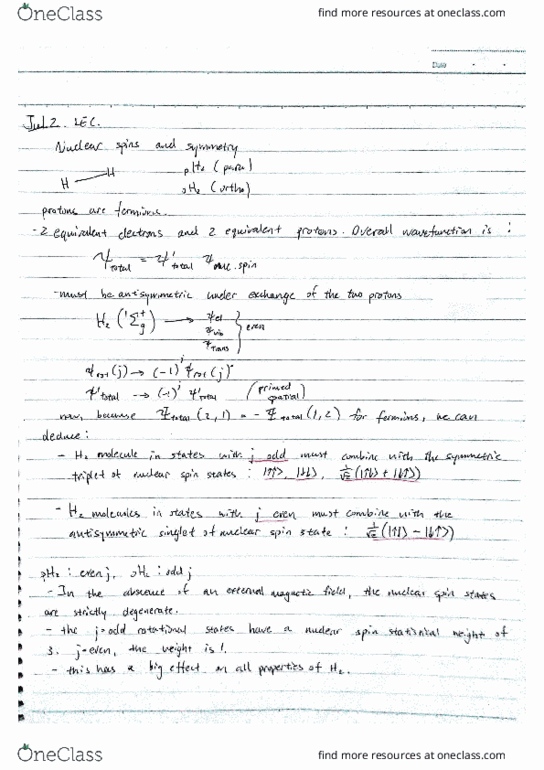 OneClass
find more resources at oneclass.com
Date
Jul 2. LEC.
Nuclear spins and symmetry
H — H
pH₂ (para)
oH₂ (ortho)
protons are fermions.
- 2 equivalent electrons and 2 equivalent protons. Overall wavefunction is :
Ψtotal = Ψ'total Ψnuc.spin
- must be antisymmetric under exchange of the two protons
H₂ (¹Σg⁺) → Ψel
Ψvib
Ψtrans } even
Ψrot(j) → (-1)^j Ψrot(j)
Ψ'total → (-1)^j Ψ'total (primed spatial)
now, because Ψtotal(2,1) = - Ψtotal(1,2) for fermions, we can
deduce :
- H₂ molecule in states with j odd must combine with the symmetric
triplet of nuclear spin states : |↑↑⟩, |↓↓⟩, 1/√2 (|↑↓⟩ + |↓↑⟩)
- H₂ molecules in states with j even must combine with the
antisymmetric singlet of nuclear spin state : 1/√2 (|↑↓⟩ - |↓↑⟩)
pH₂ : even j, oH₂ : odd j
- In the absence of an external magnetic field, the nuclear spin states
are strictly degenerate.
- the j=odd rotational states have a nuclear spin statistical weight of
3. j=even, the weight is 1.
- this has a big effect on all properties of H₂.
OneClass
find more resources at oneclass.com